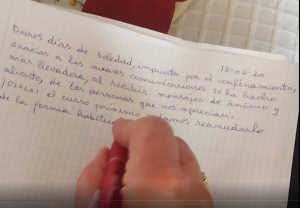 18-06-20
Duros días de soledad, impuesta por el confinamiento,
Gracias a las nuevas comunicaciones se ha hecho
más llevadera, al recibir, mensajes de ánimo y
aliento, de las personas que nos aprecian.
¡OJALA! el curso próximo podamos reanudarlo
de la forma habitu